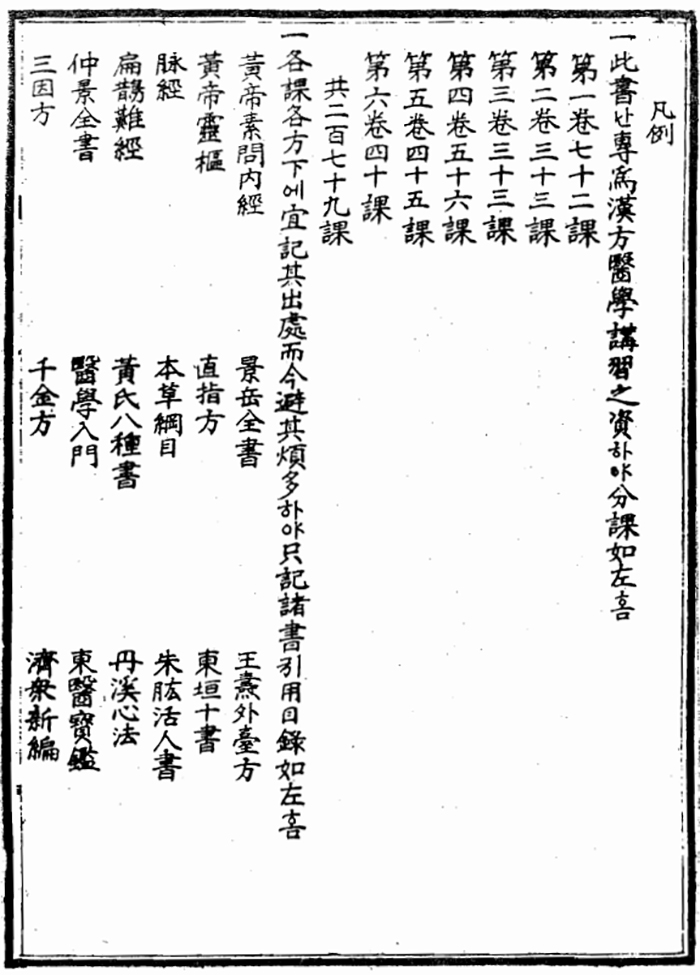 凡例
一此書난專爲漢方醫學講習之資하야分課如左홈
第一卷七十二課
第二卷三十三課
第三卷三十三課
第四卷五十六課
第五卷四十五課
第六卷四十課
共二百七十九課
一各課各方下에宜記其出處而今避其煩多하야只記諸書引用目錄如左홈
黃帝素問内經 景岳全書 王燾外臺方
黃帝靈樞 直指方 東垣十書
脉經 本草綱目 朱肱活人書
扁鵲難經 黃氏八種書 丹溪心法
仲景全書 醫學入門 東醫寶鑑
三因方 千金方 濟衆新編